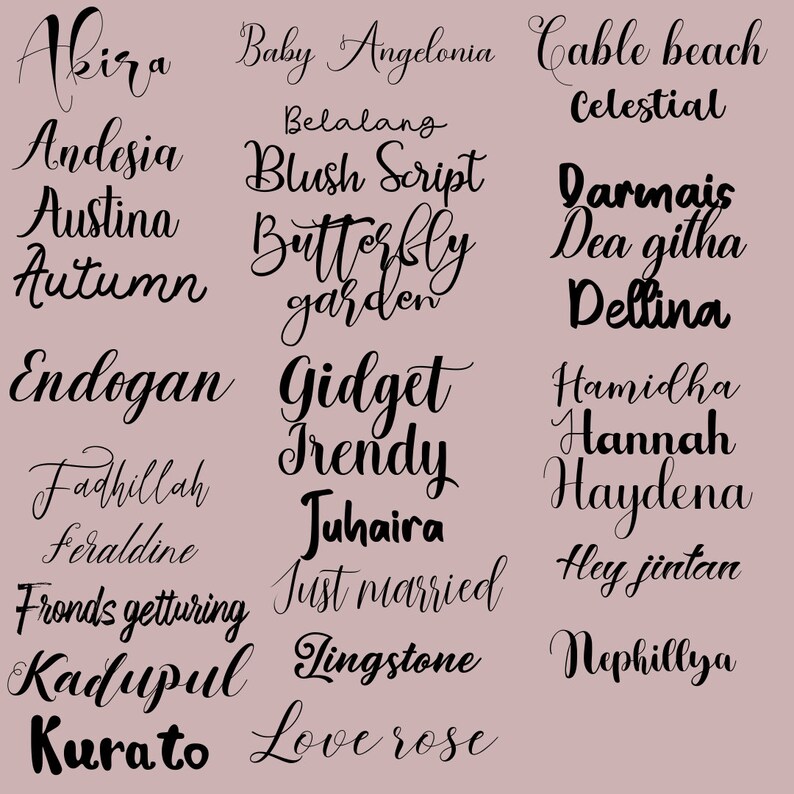 Akira
Andesia
Austina
Autumn
Endogan
Fadhillah
Feraldine
Fronds getturing
Kadupul
Kurato
Baby Angelonia
Belalang
Blush Script
Butterfly
garden
Gidget
Trendy
Juhaira
Just married
Lingstone
Love rose
Cable beach
Celestial
Darmais
Dea githa
Dellina
Hamidha
Hannah
Haydena
Hey jintan
Nephillya